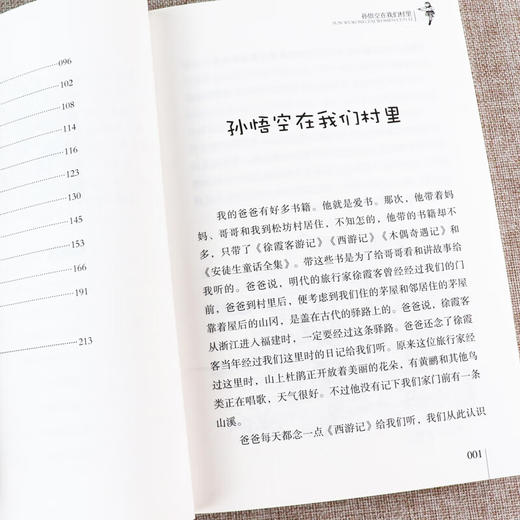 096
102
108
114
116
123
130
145
153
166
191
213
孙悟空在我们村里
SUN WUKONG ZAI WOMEN CUN LI
孙悟空在我们村里
我的爸爸有好多书籍。他就是爱书。那次，他带着妈
妈、哥哥和我到松坊村居住，不知怎的，他带的书籍却不
多，只带了《徐霞客游记》《西游记》《木偶奇遇记》和
《安徒生童话全集》。带这些书是为了给哥哥看和讲故事给
我听的。爸爸说，明代的旅行家徐霞客曾经经过我们的门
前，爸爸到村里后，便考虑到我们住的茅屋和邻居住的茅屋
靠着屋后的山冈，是盖在古代的驿路上的。爸爸说，徐霞客
从浙江进入福建时，一定要经过这条驿路。爸爸还念了徐霞
客当年经过我们这里时的日记给我们听。原来这位旅行家经
过这里时，山上杜鹃正开放着美丽的花朵，有黄鹂和其他鸟
类正在唱歌，天气很好。不过他没有记下我们家门前有一条
山溪。
爸爸每天都念一点《西游记》给我们听，我们从此认识
001